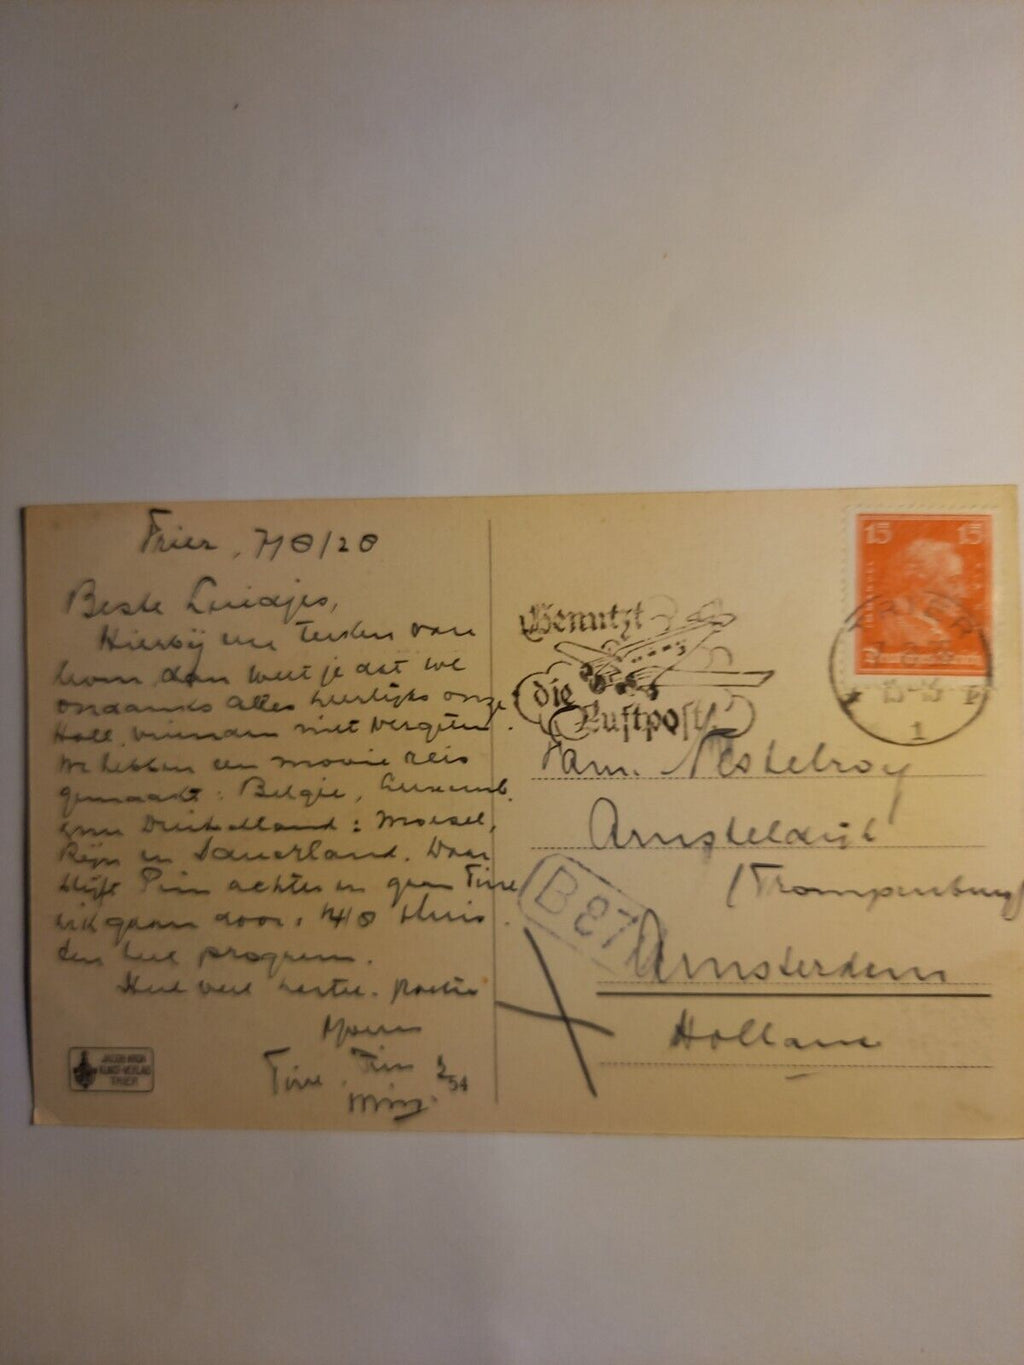 Trier, 7/8/28
Beste Luidjes,
Hierbij een teeken van
leven, dan weet je dat we
ondanks alles heerlijks onze
Holl. vrienden niet vergeten.
We hebben een mooie reis
gemaakt: België, Luxemb.
Duitschland: Moesel,
Rijn en Sauerland. Daar
blijft Pim achter en gaan Tine
en ik gaan door. 14/8 thuis
program.
Heel veel hartel. groeten
Tine, Pim
54
JACOB
KUNST-VERLAG
TRIER
15 15
Deutsches Reich
TRIER
1
Benutzt
die
Luftpost
Fam. Nestelroy
Amsteldijk
(Trompenburg)
B 87
Amsterdam
Holland